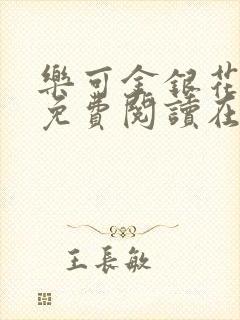 樂可金銀花
免費閱讀在
王長敏